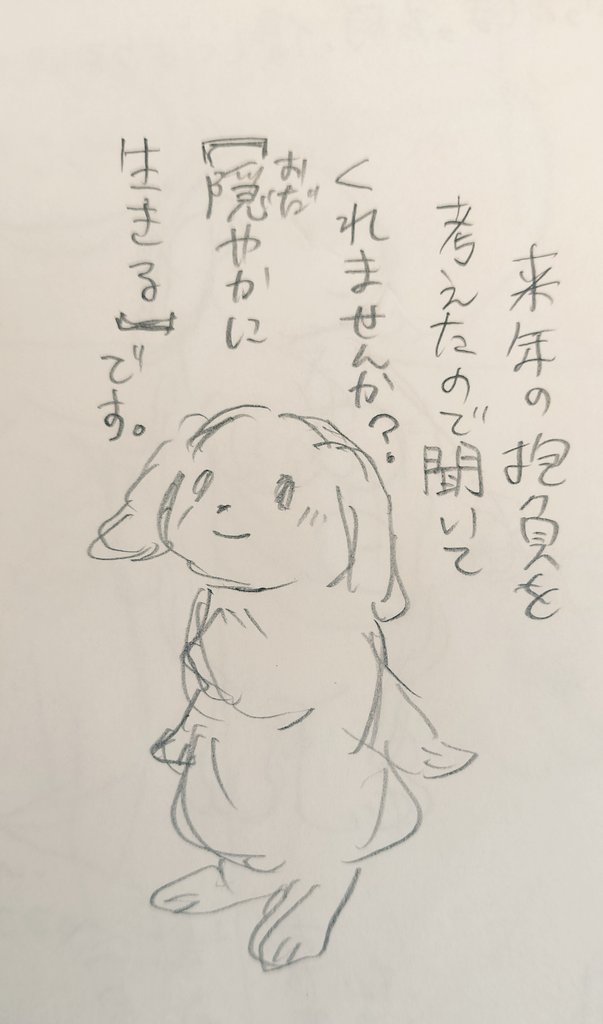 来年の抱負を
考えたので聞いて
くれませんか？
【隠やかに
おだ
生きる】です。